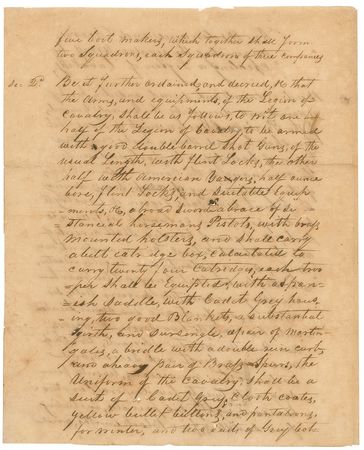 five boot makers, which together shall form
two Squadrons, each Squadron of three companies
Sec 2d. Be it further ordained, and decreed, &c that
the Arms, and equipments, of the Legion of
Cavalry, shall be as follows, to wit one
half of the Legion of Cavalry, to be armed
with a good double barrel Shot Guns, of the
usual Length, with flint Locks, the other
half with American Yaugers, half ounce
bore, flint Locks, and suitable
ments, &c, a broad sword a brace of su
stancial horsemans Pistols, with brass
mounted holsters, and shall carry
a belt catridge box, Calculated to
carry twenty four Catridges, each troo
per shall be Equipted, with a span
ish Saddle, with Cadet Grey hous
ing, two good Blankets, a substantial
Girth, and Sursingle, a pair of Martin
gales, a bridle with a double rein curb,
and a heavy pair of Brass spurs, the
Uniform of the Cavalry, shall be a
suit of Cadet grey, Cloth coates,
yellow bullet buttons, and pantaloons,
for winter, and two suits of Grey